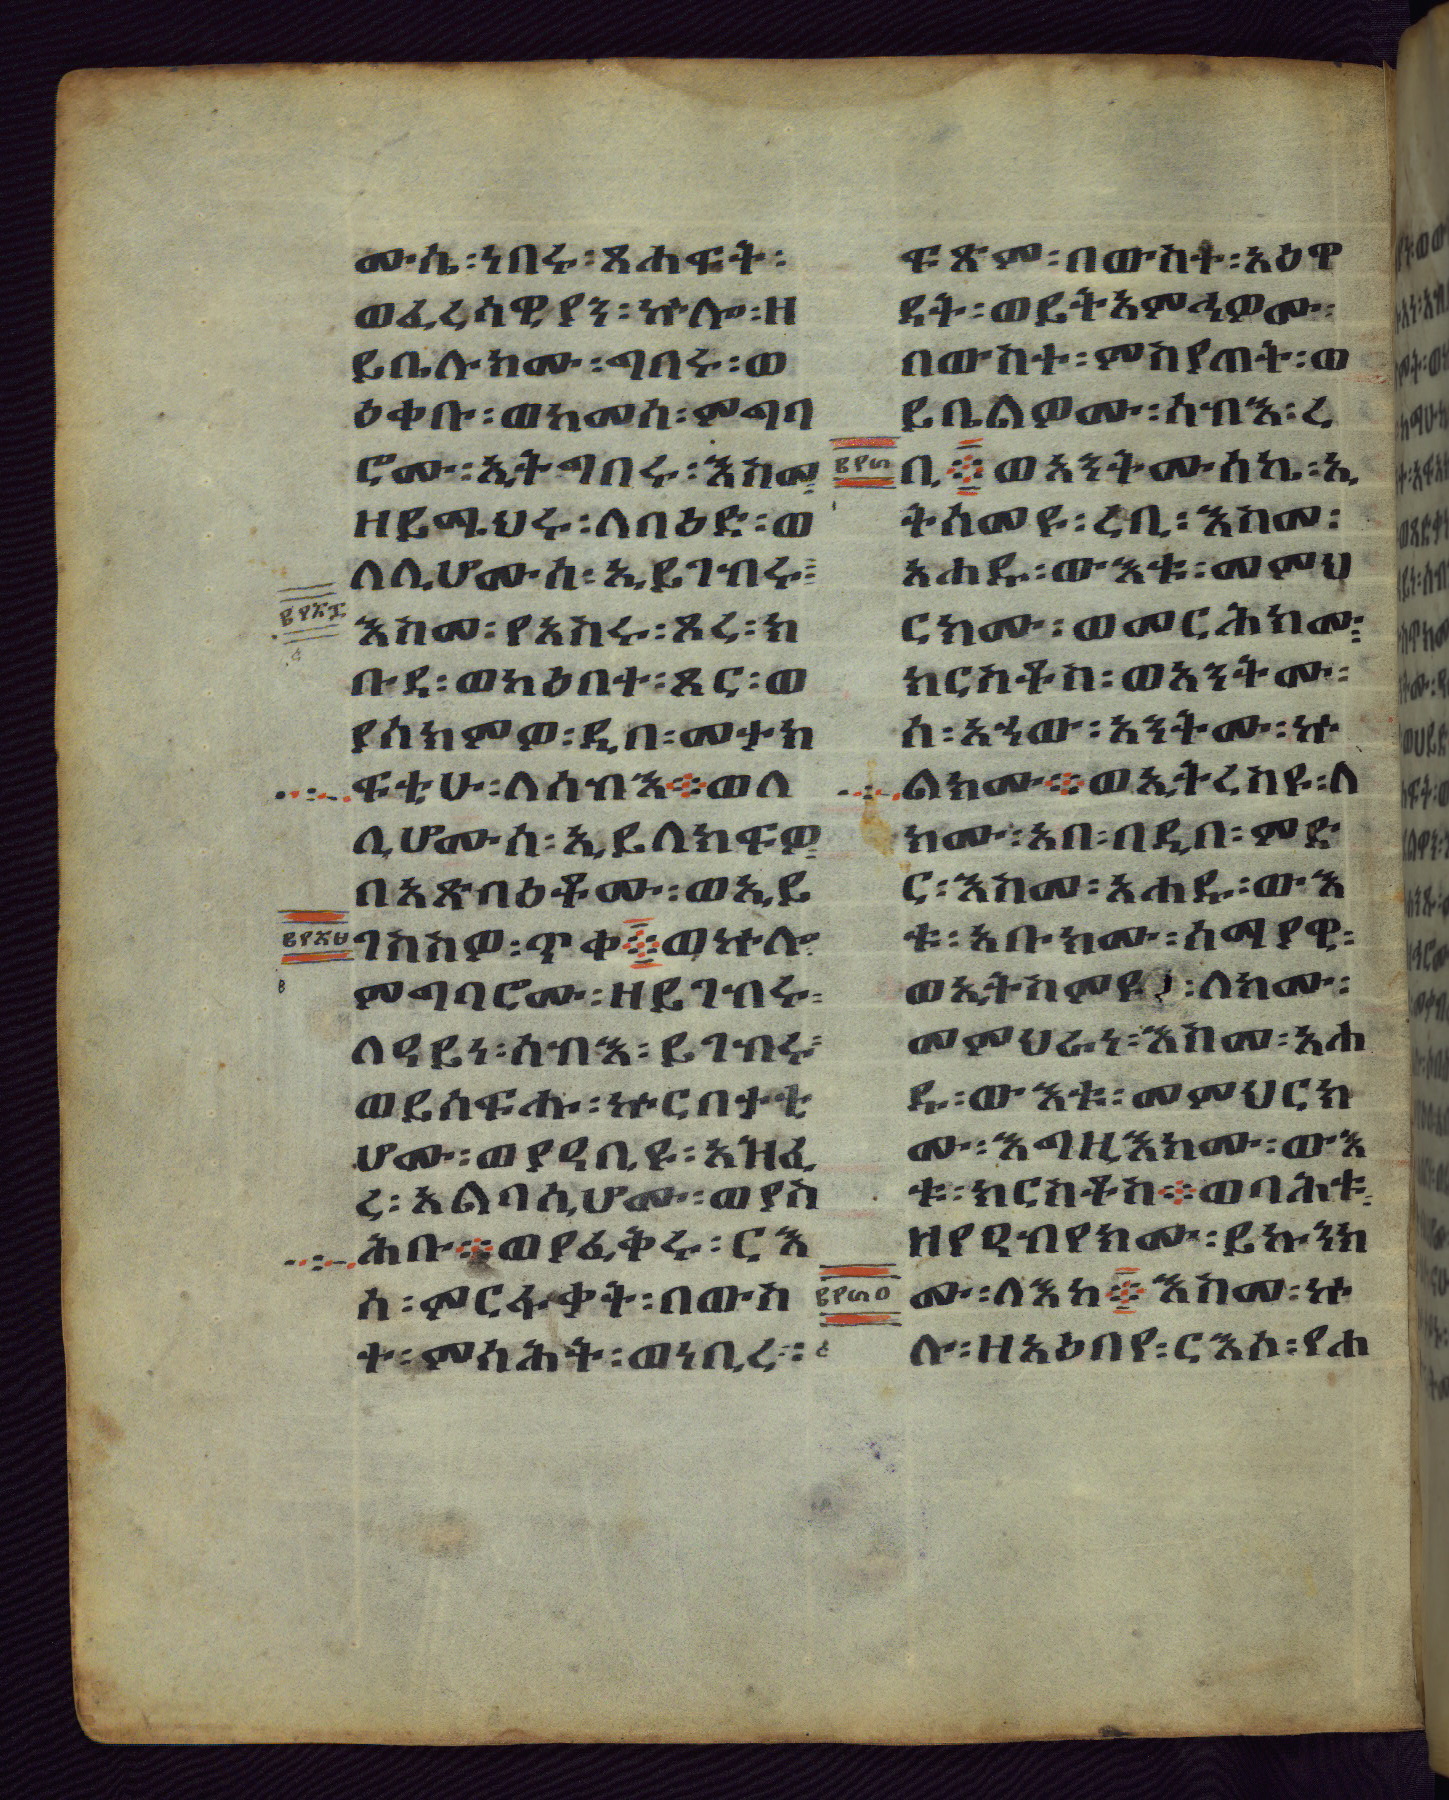 ሙሴ፡ነበሩ፡ጸሐፍት፡
ወፈሪሳዊያን፡ኵሎ፡ዘ
ይቤሉክሙ፡ግበሩ፡ወ
ዕቀቡ፡ወክመሰ፡ምግባ
ሮሙ፡ኢትግበሩ፡እስመ፡
ዘይሜህሩ፡ለባዕድ፡ወ
ለሊሆሙሰ፡ኢይገብሩ፡
እስመ፡የአስሩ፡ጾረ፡ክ
ቡደ፡ወክዕበተ፡ጾር፡ወ
ያሰክምዎ፡ዲበ፡መታክ
ፍቲሁ፡ለሰብእ፨ወለ
ሊሆሙሰ፡ኢይለክፍዎ፡
በአጽባዕቶሙ፡ወኢይ
ገስስዎ፡ጥቀ፨ወኵሎ፡
ምግባሮሙ፡ዘይገብሩ፡
ለዓይነ፡ሰብእ፡ይገብሩ፡
ወይሰፍሑ፡ኵርበታቲ
ሆሙ፡ወያዓቢዩ፡አዝፈ
ረ፡አልባሲሆሙ፡ወያስ
ሕቡ፨ወያፈቅሩ፡ርእ
ሰ፡ምርፋቃት፡በውስ
ተ፡ምሳሕት፡ወነቢረ፡
ፍጽም፡በውስተ፡አዕዋ
ዳት፡ወይትአምኅዎሙ፡
በውስተ፡ምስያጣት፡ወ
ይቤልዎሙ፡ሰብእ፡ረ
ቢ፨ወአንትሙሰኬ፡ኢ
ትሰመዩ፡ረቢ፡እስመ፡
አሐዱ፡ውእቱ፡መምህ
ርክሙ፡ወመርሕክሙ፡
ክርስቶስ፡ወአንትሙ፡
ሰ፡አኀው፡አንትሙ፡ኵ
ልክሙ፨ወኢትረስዩ፡ለ
ክሙ፡አበ፡በዲበ፡ምድ
ር፡እስመ፡አሐዱ፡ውእ
ቱ፡አቡክሙ፡ሰማያዊ፡
ወኢትስምዩ፡ለክሙ፡
መምህራነ፡እስመ፡አሐ
ዱ፡ውእቱ፡መምህርክ
ሙ፡እግዚእክሙ፡ውእ
ቱ፡ክርስቶስ፨ወባሕቱ፡
ዘየዓብየክሙ፡ይኩንክ
ሙ፡ላእከ፨እስመ፡ኵ
ሉ፡ዘአዕበየ፡ርእሰ፡የሐ